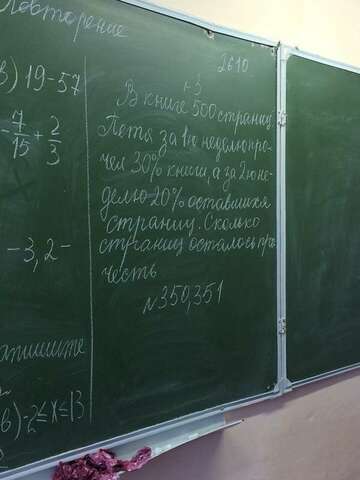 Повторение
в) 19-57
-7/15 + 2/3
-3,2-
апишите
в) -2≤x≤13
26 10
№3
В книге 500 страниц
Петя за 1ю неделю про-
чел 30% книги, а за 2ю не-
делю 20% оставшихся
страниц. Сколько
страниц осталось про
честь
№350,351